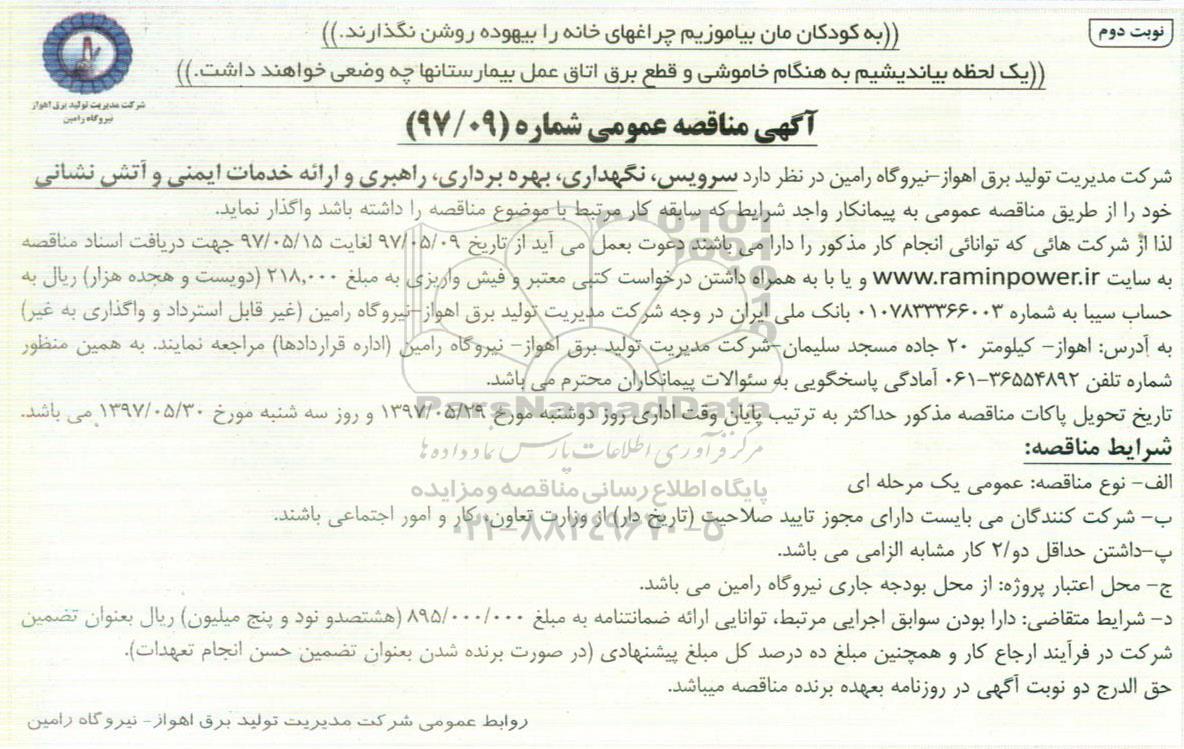 نوبت دوم
((به کودکان مان بیاموزیم چراغهای خانه را بیهوده روشن نگذارند.))
((یک لحظه بیاندیشیم به هنگام خاموشی و قطع برق اتاق عمل بیمارستانها چه وضعی خواهند داشت.))
شرکت مدیریت تولید برق اهواز
نیروگاه رامین
آگهی مناقصه عمومی شماره (۹۷/۰۹)
شرکت مدیریت تولید برق اهواز-نیروگاه رامین در نظر دارد سرویس، نگهداری، بهره برداری، راهبری و ارائه خدمات ایمنی و آتش نشانی
خود را از طریق مناقصه عمومی به پیمانکار واجد شرایط که سابقه کار مرتبط با موضوع مناقصه را داشته باشد واگذار نماید.
لذا از شرکت هائی که توانائی انجام کار مذکور را دارا می باشند دعوت بعمل می آید از تاریخ ۹۷/۰۵/۰۹ لغایت ۹۷/۰۵/۱۵ جهت دریافت اسناد مناقصه
به سایت www.raminpower.ir و یا با به همراه داشتن درخواست کتبی معتبر و فیش واریزی به مبلغ ۲۱۸,۰۰۰ (دویست و هجده هزار) ریال به
حساب سیبا به شماره ۰۱۰۷۸۳۳۳۶۶۰۰۳ بانک ملی ایران در وجه شرکت مدیریت تولید برق اهواز-نیروگاه رامین (غیر قابل استرداد و واگذاری به غیر)
به آدرس: اهواز- کیلومتر ۲۰ جاده مسجد سلیمان-شرکت مدیریت تولید برق اهواز- نیروگاه رامین (اداره قراردادها) مراجعه نمایند. به همین منظور
شماره تلفن ۳۶۵۵۴۸۹۲-۰۶۱ آمادگی پاسخگویی به سئوالات پیمانکاران محترم می باشد.
ParsNamadData
تاریخ تحویل پاکات مناقصه مذکور حداکثر به ترتیب پایان وقت اداری روز دوشنبه مورخ ۱۳۹۷/۰۵/۲۹ و روز سه شنبه مورخ ۱۳۹۷/۰۵/۳۰ می باشد.
مرکز فرآوری اطلاعات پارس نماد داده ها
شرایط مناقصه:
الف- نوع مناقصه: عمومی یک مرحله ای
پایگاه اطلاع رسانی مناقصه و مزایده
ب- شرکت کنندگان می بایست دارای مجوز تایید صلاحیت (تاریخ دار) از وزارت تعاون، کار و امور اجتماعی باشند.
۰۲۱-۸۸۳۴۹۶۷۰-۵
پ-داشتن حداقل دو/۲ کار مشابه الزامی می باشد.
ج- محل اعتبار پروژه: از محل بودجه جاری نیروگاه رامین می باشد.
د- شرایط متقاضی: دارا بودن سوابق اجرایی مرتبط، توانایی ارائه ضمانتنامه به مبلغ ۸۹۵/۰۰۰/۰۰۰ (هشتصدو نود و پنج میلیون) ریال بعنوان تضمین
شرکت در فرآیند ارجاع کار و همچنین مبلغ ده درصد کل مبلغ پیشنهادی (در صورت برنده شدن بعنوان تضمین حسن انجام تعهدات).
حق الدرج دو نوبت آگهی در روزنامه بعهده برنده مناقصه میباشد.
روابط عمومی شرکت مدیریت تولید برق اهواز- نیروگاه رامین